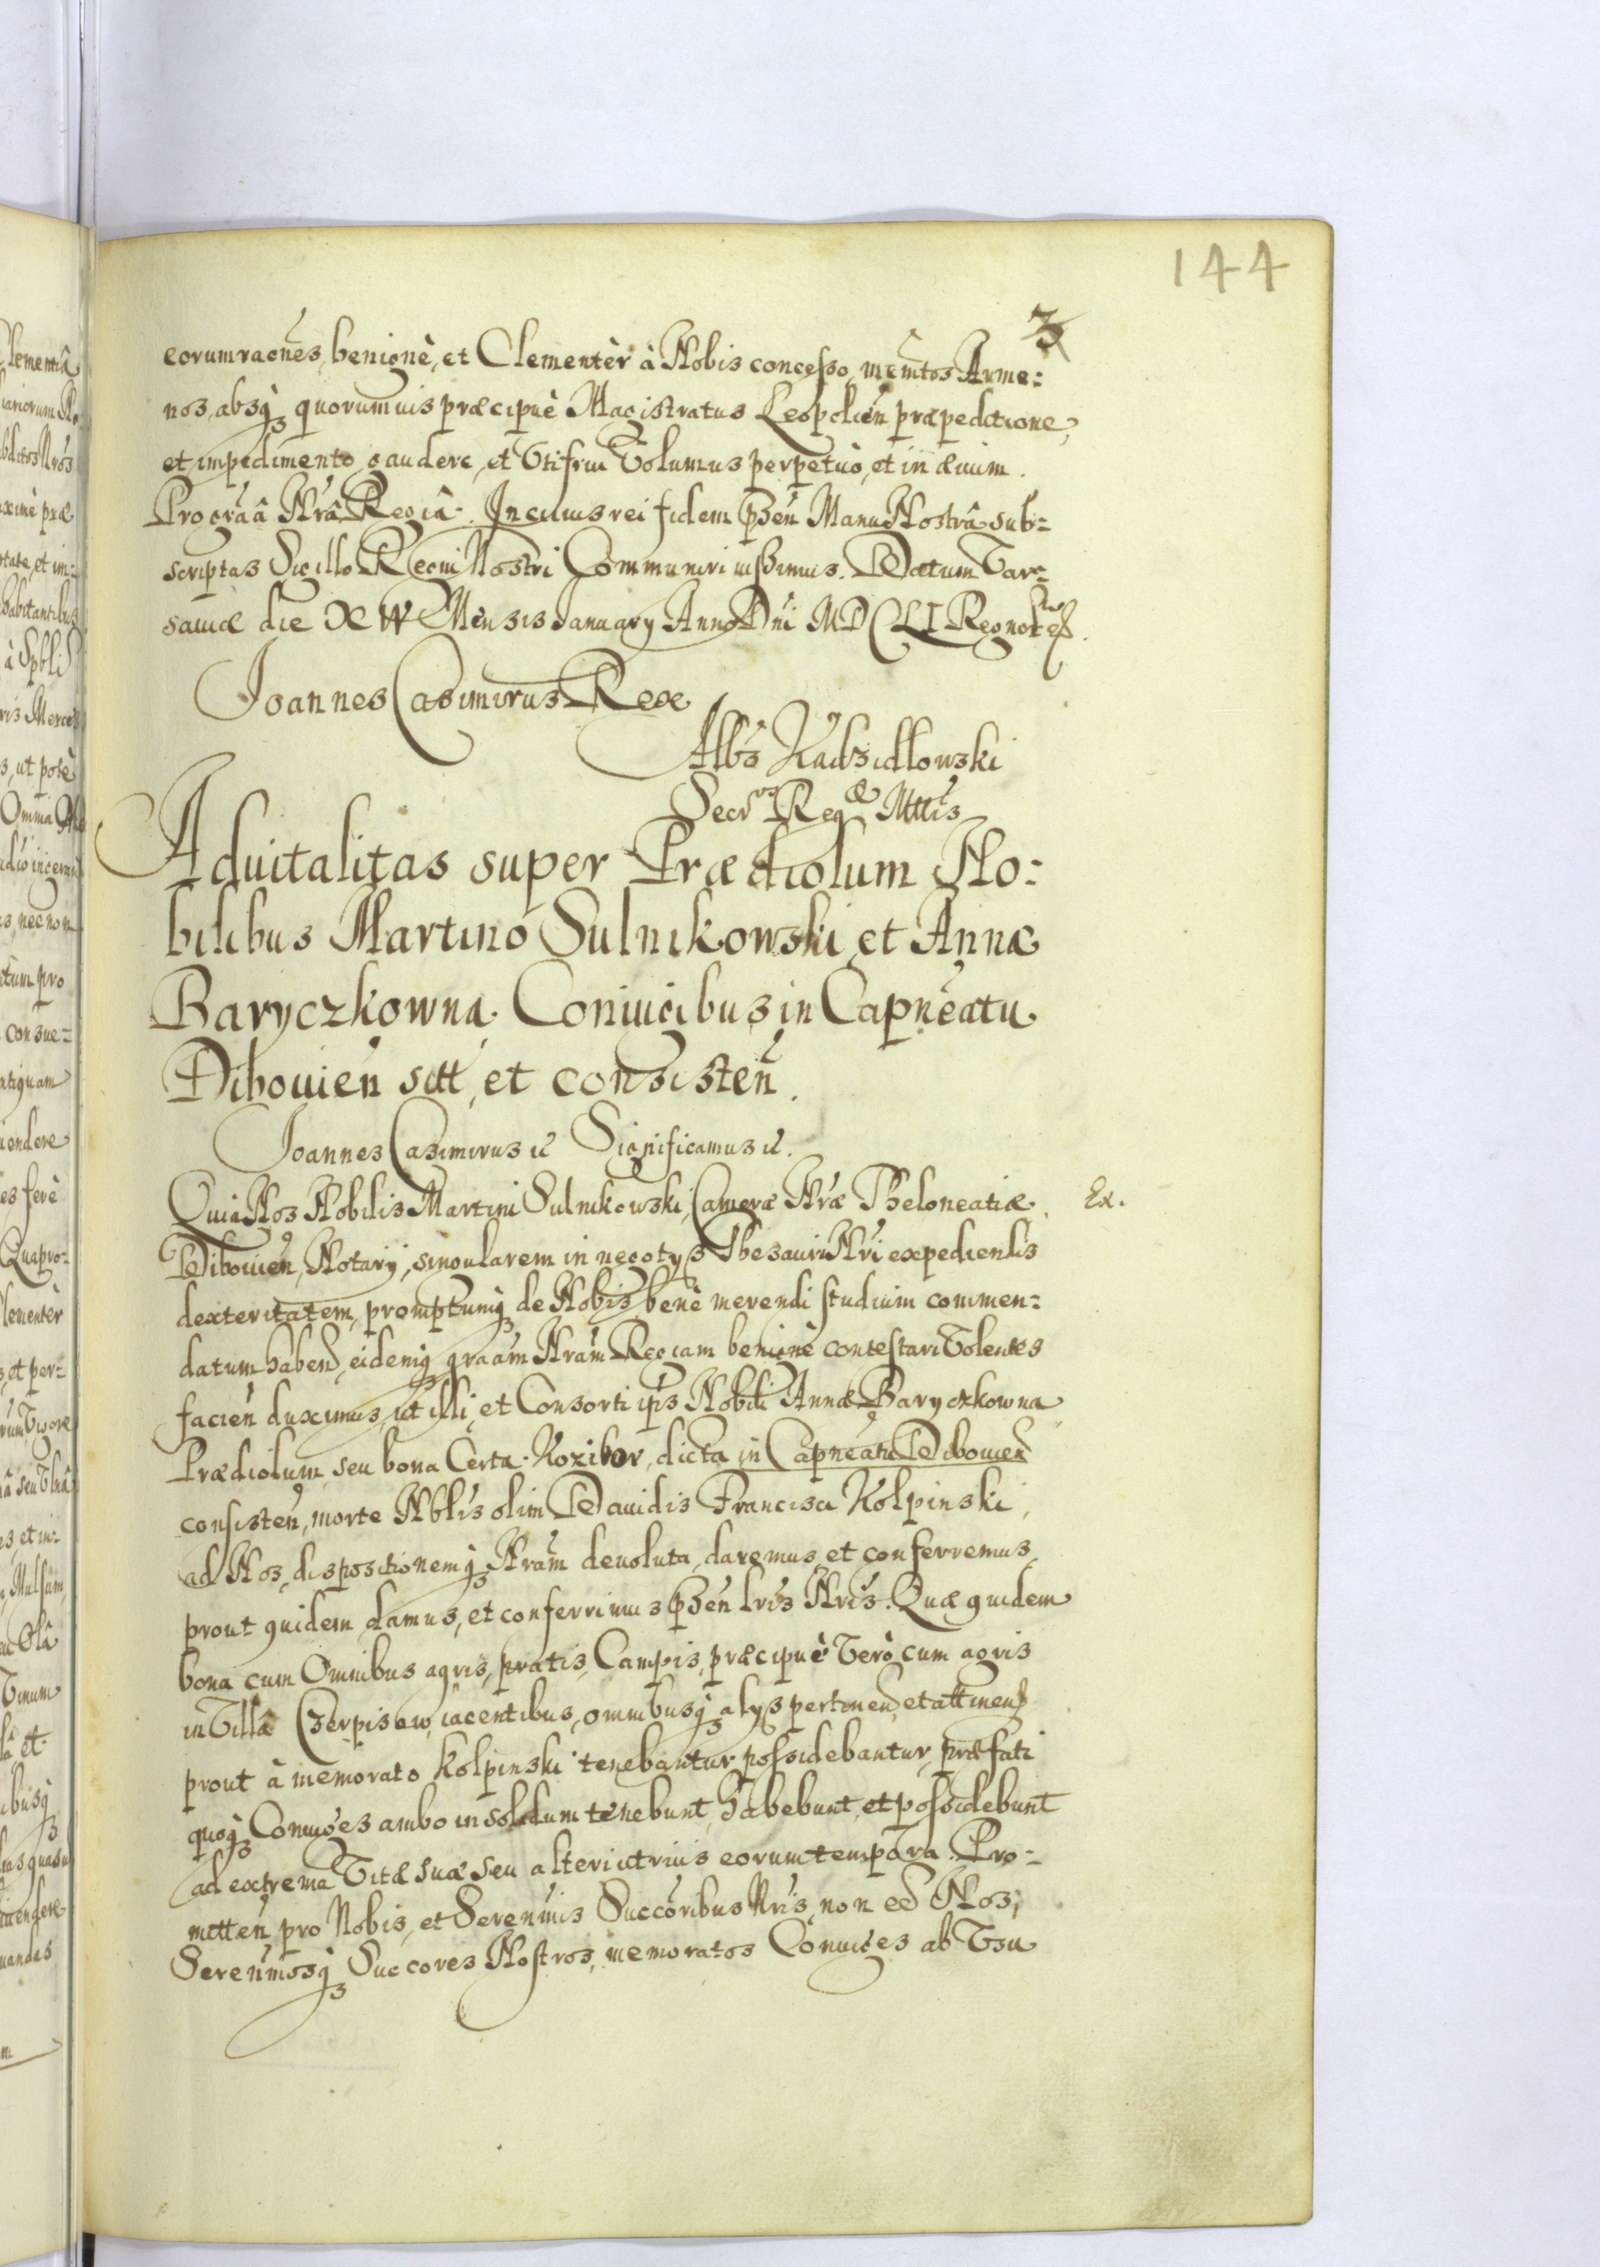 144
3
eorumracnes, benignè, et Clementèr à Nobis concesso, memtos Arme=
nos, absq quorumuis præcipuè Magistratus Leopolien præpeditione,
et impedimento, gaudere, et Vtifrui Volumus perpetuò, et in æuum.
Pro graâ Nrâ Regiâ. In cuius rei fidem pnsen Manu Nostrâ sub=
scriptas Sigillo Regni Nostri Communiri iussimus. Datum Var=
sauiæ die XIV Mensis January Anno Dni MDCLI Regnor
Ioannes Casimirus Rex
Albs Kadzidłowski
Secrus Regæ Mttis
Aduitalitas super Prædiolum No=
bilibus Martino Sulnikowski, et Annæ
Baryczkowna Coniugibus in Capneatu
Dibouien sitt, et consisten.
Ioannes Casimirus ec Significamus ec.
Quia Nos Nobilis Martini Sulnikowski, Cameræ Nræ Theloneatiæ
Ex.
Dibouien, Notarij, singularem in negotys Thesauri Nri expediendis
dexteritatem, promptumq de Nobis benè merendi studium commen=
datum haben, eidemq graam Nram Regiam benignè contestari Volentes
facien duximus, ut illi, et Consorti ips Nobili Annæ Baryczkowna
Prædiolum seu bona Certa Rozibor, dicta in Capneatu Dibouien
consisten, morte Nblis olim Dauidis Francisci Kolpinski,
ad Nos, dispositionemq Nram deuoluta, daremus, et conferremus,
prout quidem damus, et conferrimus pnsen lris Nris. Quæ quidem
bona cum Omnibus agris, pratis, Campis, præcipuè Verò cum agris
in Villâ Czerpisew, iacentibus, omnibusq alys pertinen, et attinen,
prout à memorato Kolpinski tenebantur, possidebantur, præfati
quoq Coniuges ambo in solidum tenebunt, habebunt, et possidebunt
ad extrema Vitæ suæ seu alteriutrius eorum tempora. Pro=
mitten, pro Nobis, et Serenmis Succoribus Nris, non ee Nos,
Serenmosq Succores Nostros, memoratos Coniuges ab Vsu